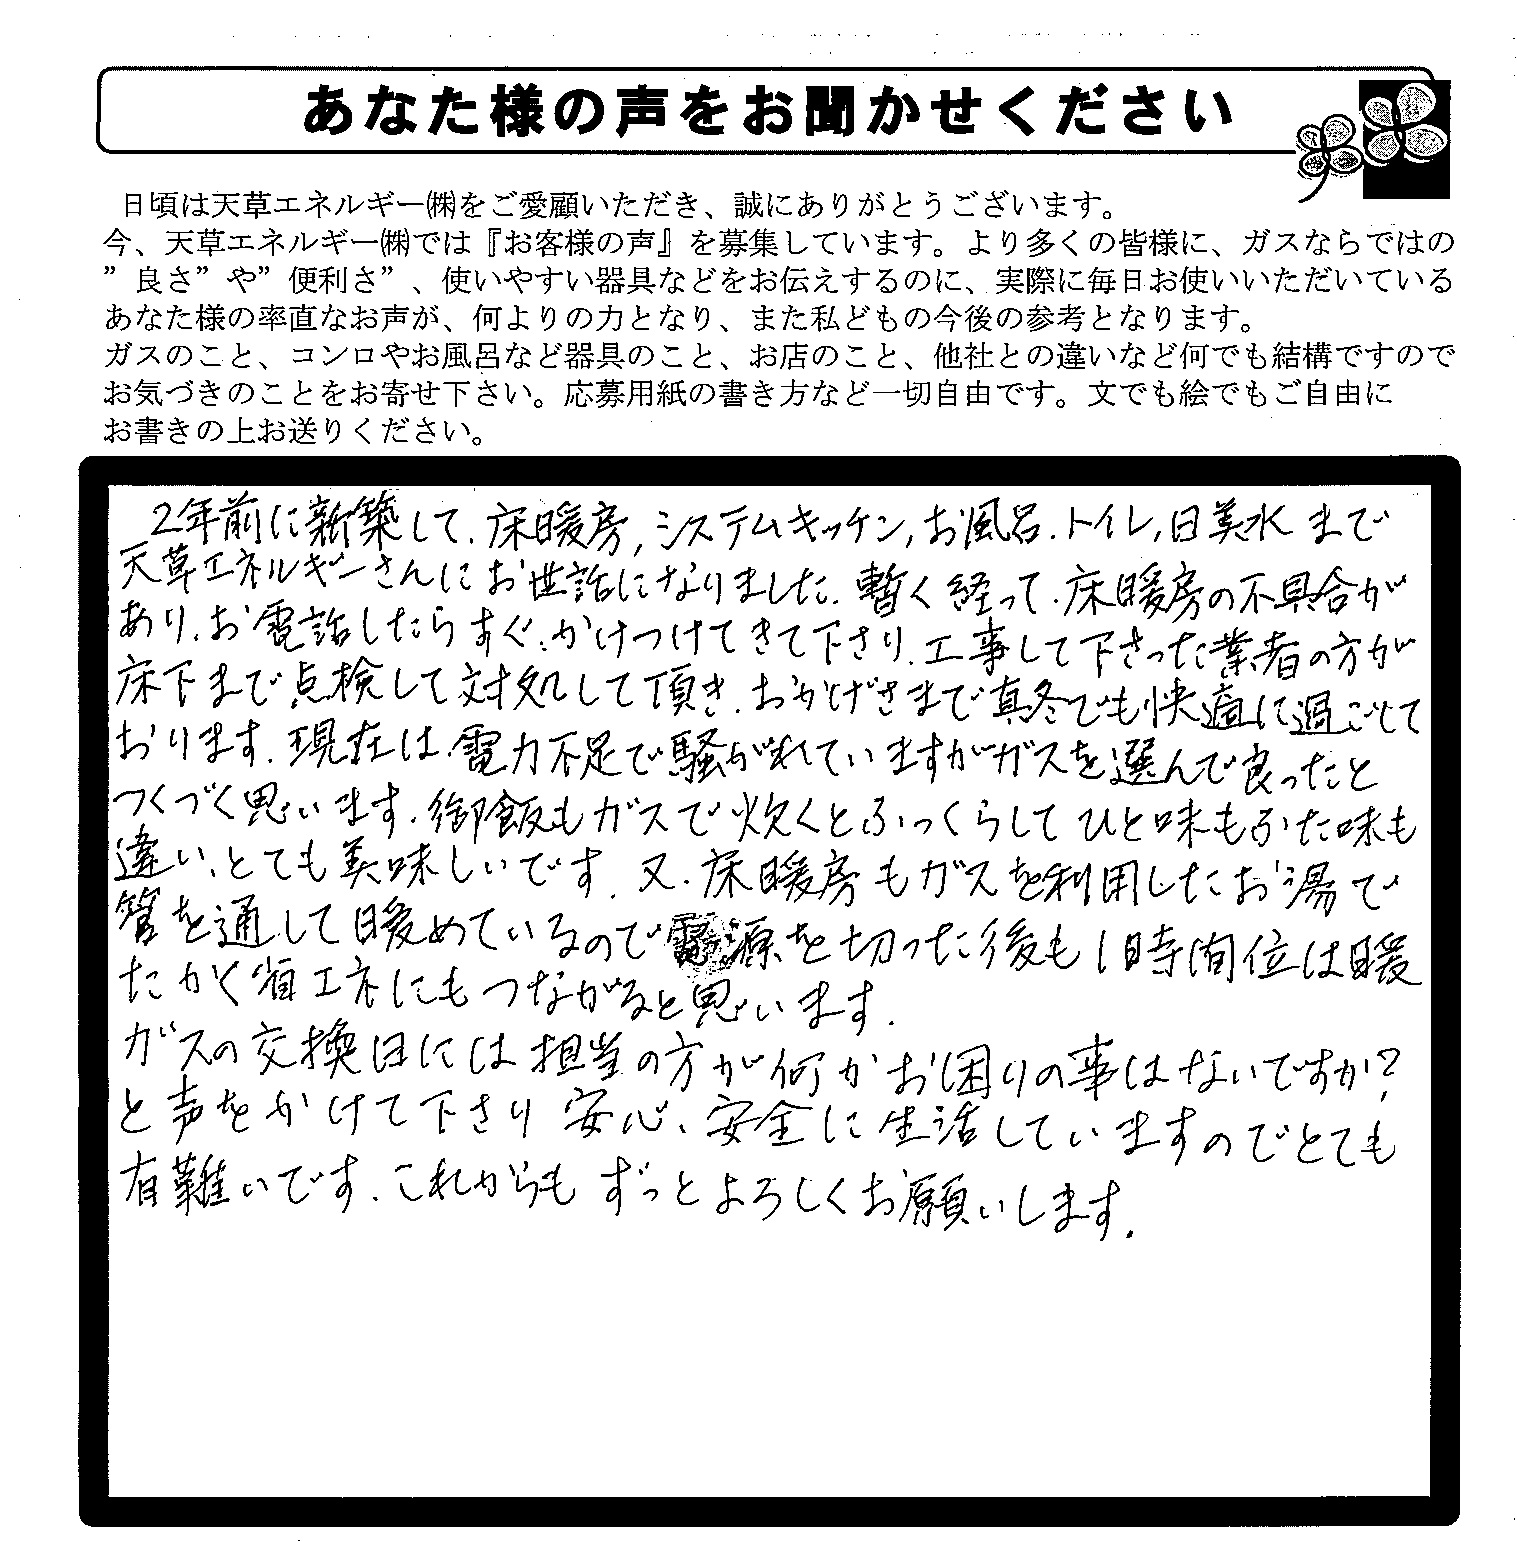 あなた様の声をお聞かせください
日頃は天草エネルギー㈱をご愛顧いただき、誠にありがとうございます。
今、天草エネルギー㈱では『お客様の声』を募集しています。より多くの皆様に、ガスならではの
”良さ”や”便利さ”、使いやすい器具などをお伝えするのに、実際に毎日お使いいただいている
あなた様の率直なお声が、何よりの力となり、また私どもの今後の参考となります。
ガスのこと、コンロやお風呂など器具のこと、お店のこと、他社との違いなど何でも結構ですので
お気づきのことをお寄せ下さい。応募用紙の書き方など一切自由です。文でも絵でもご自由に
お書きの上お送りください。
2年前に新築して、床暖房,システムキッチン,お風呂、トイレ,日美水まで
天草エネルギーさんにお世話になりました。暫く経って、床暖房の不具合が
あり、お電話したらすぐ、かけつけてきて下さり、工事して下さった業者の方が
床下まで点検して対処して頂き、おかげさまで真冬でも快適に過ごして
おります。現在は、電力不足で騒がれていますがガスを選んで良ったと
つくづく思います。御飯もガスで炊くとふっくらしてひと味もふた味も
違い、とても美味しいです。又、床暖房もガスを利用したお湯で
管を通して暖めているので電源を切った後も1時間位は暖
たかく省エネにもつながると思います。
ガスの交換日には担当の方が何かお困りの事はないですか?
と声をかけて下さり安心、安全に生活していますのでとても
有難いです。これからもずっとよろしくお願いします。